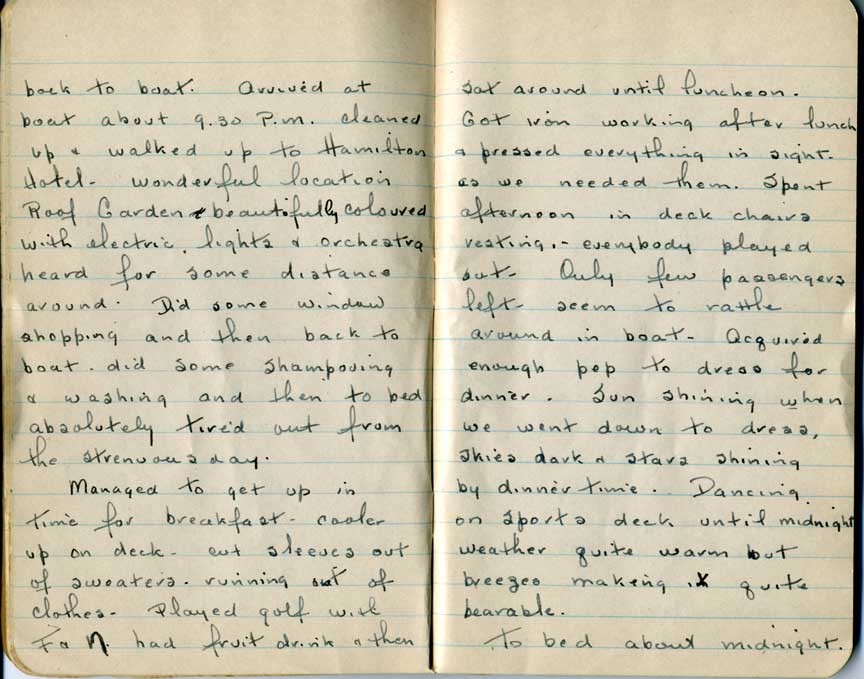 back to boat. Arrived at
boat about 9.30 P.M. cleaned
up & walked up to Hamilton
Hotel - wonderful location
Roof Garden & beautifully coloured
with electric lights & orchestra
heard for some distance
around. Did some window
shopping and then back to
boat. did some shampooing
& washing and then to bed
absolutely tired out from
the strenuous day.
Managed to get up in
time for breakfast - cooler
up on deck - cut sleeves out
of sweaters. running out of
clothes - Played golf with
F & N. had fruit drink & then
sat around until luncheon.
Got iron working after lunch
& pressed everything in sight.
as we needed them. Spent
afternoon in deck chairs
resting, - everybody played
out - Only few passengers
left - seem to rattle
around in boat - Acquired
enough pep to dress for
dinner. Sun shining when
we went down to dress,
skies dark & stars shining
by dinner time. Dancing
on sports deck until midnight
weather quite warm but
breezes making it quite
bearable.
To bed about midnight.